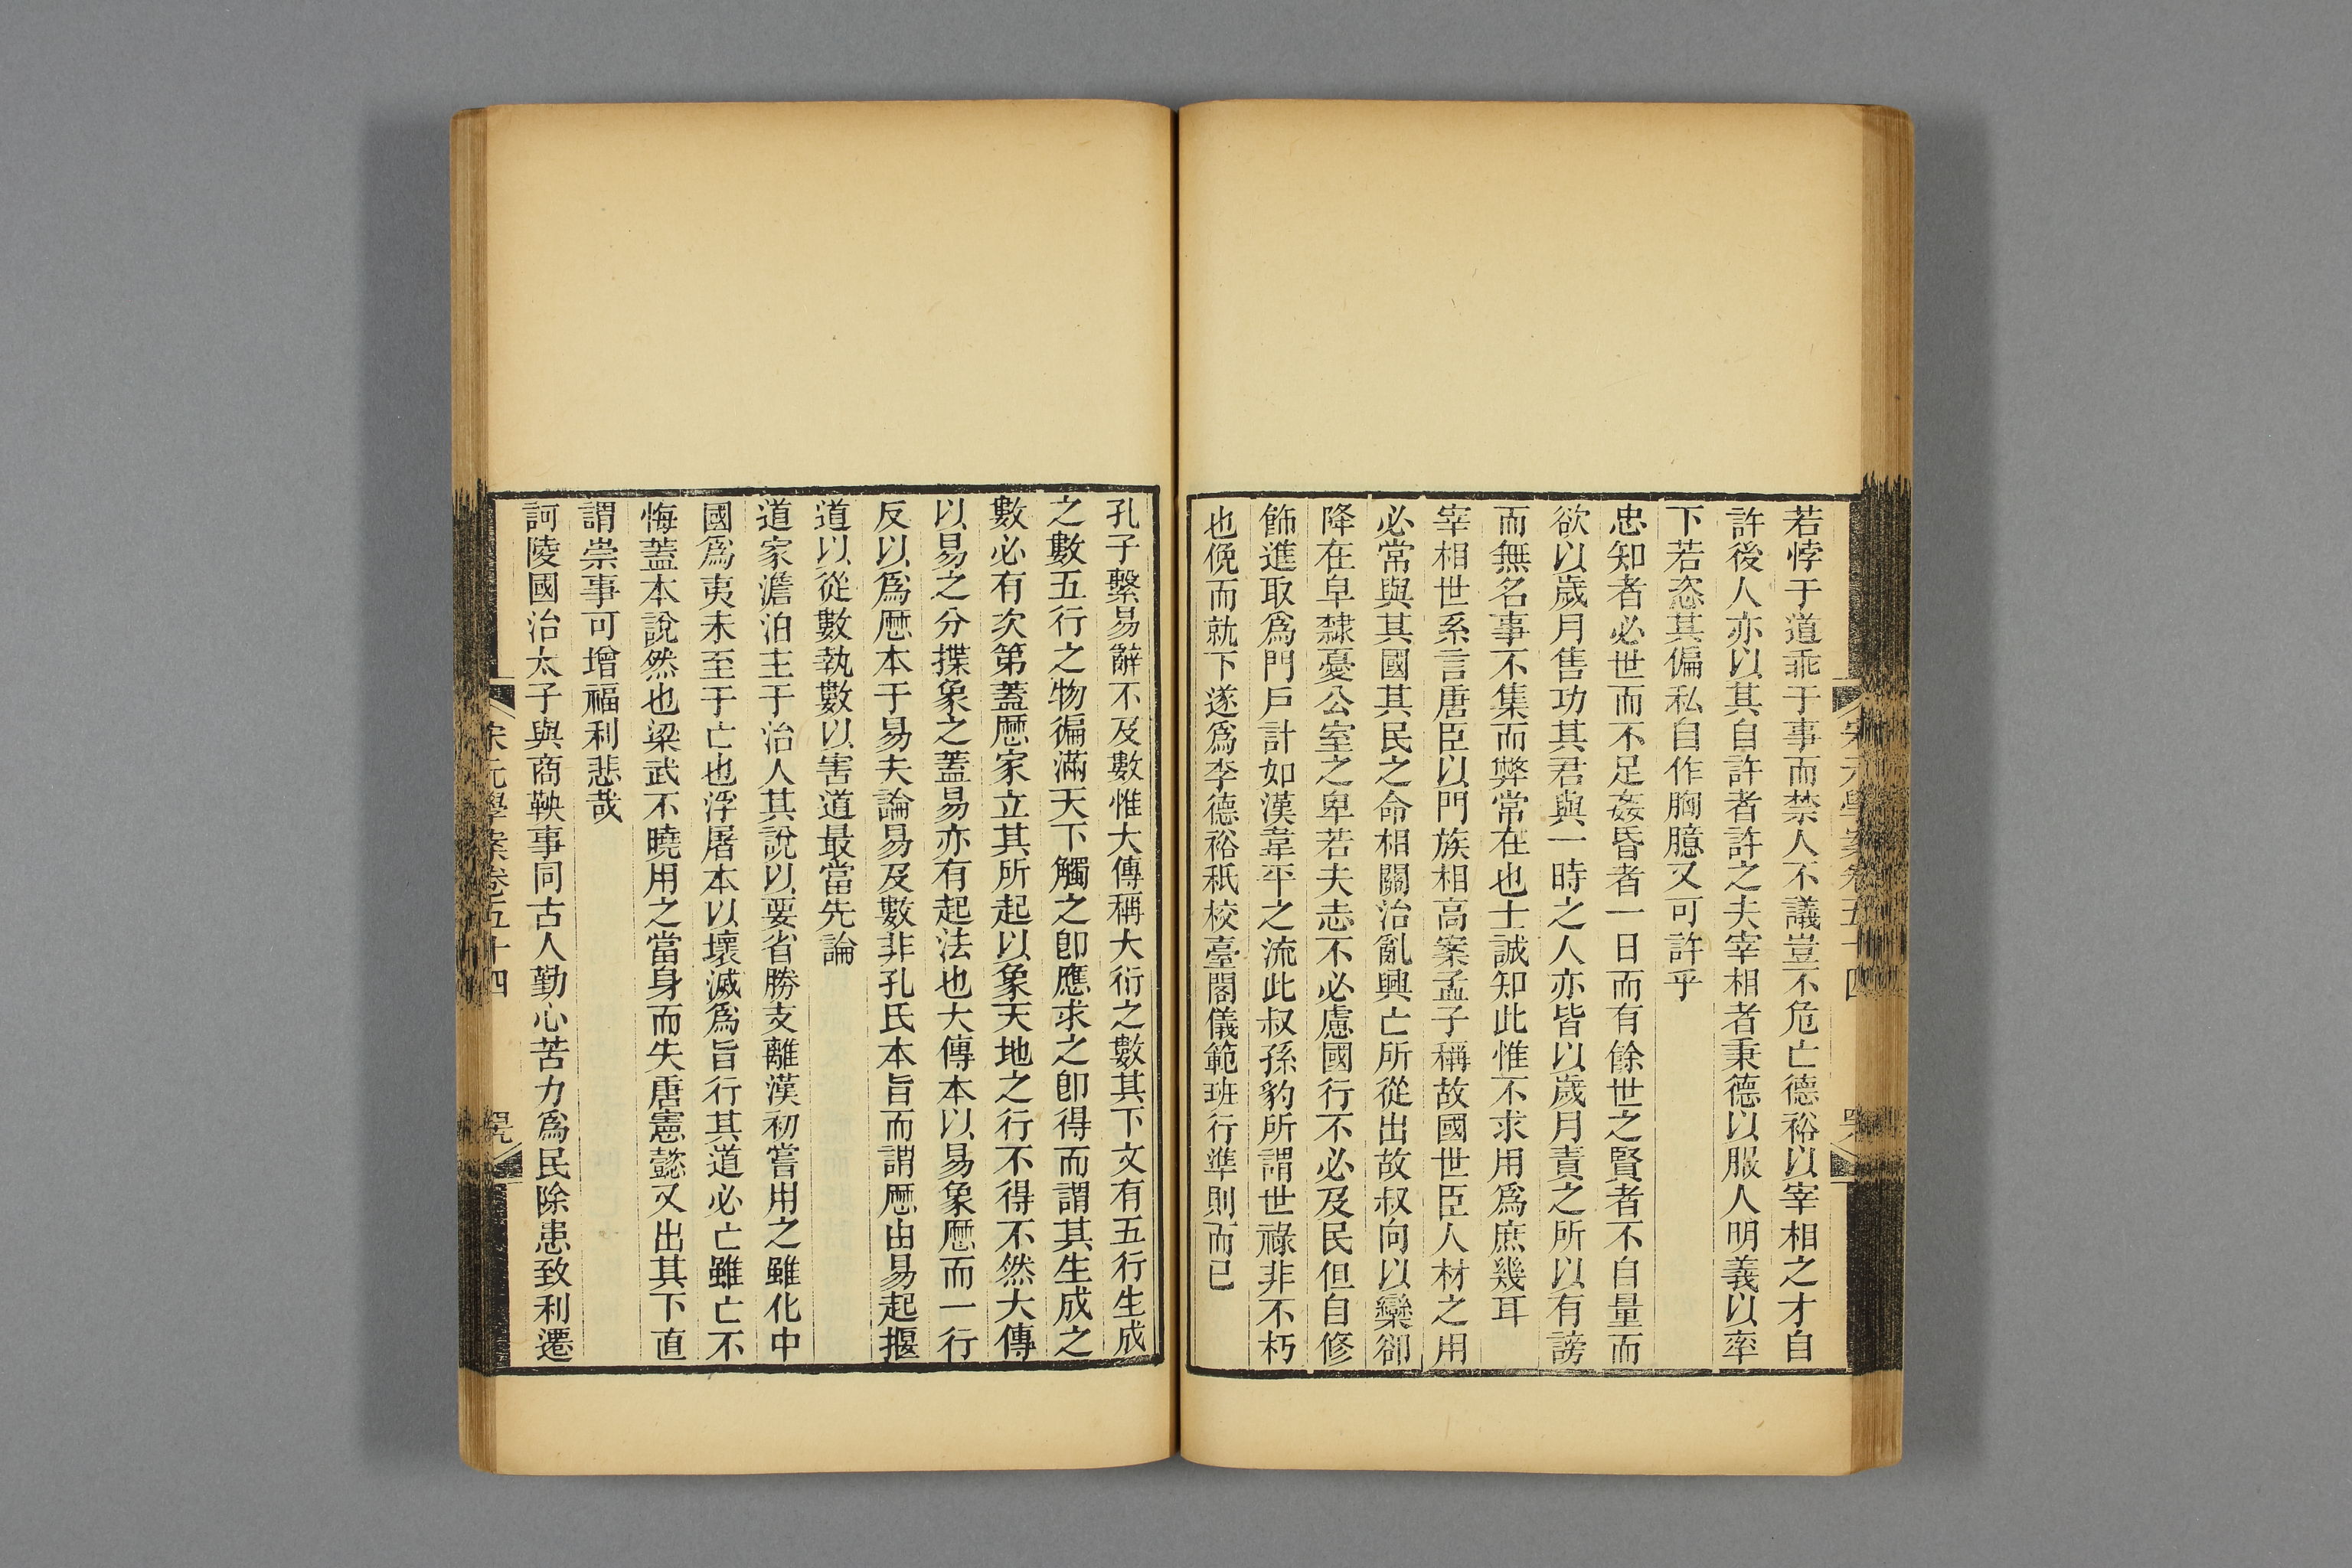 若悖于道乖于事而禁人不議豈不危亡德裕以宰相之才自
許後人亦以其自許者許之夫宰相者秉德以服人明義以率
下若恣其偏私自作胸臆又可許乎
忠知者必世而不足姦昏者一日而有餘世之賢者不自量而
欲以歲月售功其君與一時之人亦皆以歲月責之所以有謗
而無名事不集而弊常在也士誠知此惟不求用爲庶幾耳
宰相世系言唐臣以門族相高案孟子稱故國世臣人材之用
必常與其國其民之命相關治亂興亡所從出故叔向以欒郤
降在阜隸憂公室之卑若夫志不必慮國行不必及民但自修
飾進取爲門戶計如漢韋平之流此叔孫豹所謂世祿非不朽
也俛而就下遂爲李德裕秖校臺閣儀範班行準則而已
孔子繫易辭不及數惟大傳稱大衍之數其下文有五行生成
之數五行之物徧滿天下觸之卽應求之卽得而謂其生成之
數必有次第蓋厯家立其所起以象天地之行不得不然大傳
以易之分揲象之蓋易亦有起法也大傳本以易象厯而一行
反以爲厯本于易夫論易及數非孔氏本旨而謂厯由易起揠
道以從數執數以害道最當先論
道家澹泊主于治人其說以要省勝支離漢初嘗用之雖化中
國爲夷未至于亡也浮屠本以壞滅爲旨行其道必亡雖亡不
悔蓋本說然也梁武不曉用之當身而失唐憲懿又出其下直
謂崇事可增福利悲哉
訶陵國治太子與商鞅事同古人勤心苦力爲民除患致利遷
宋元學案卷五十四